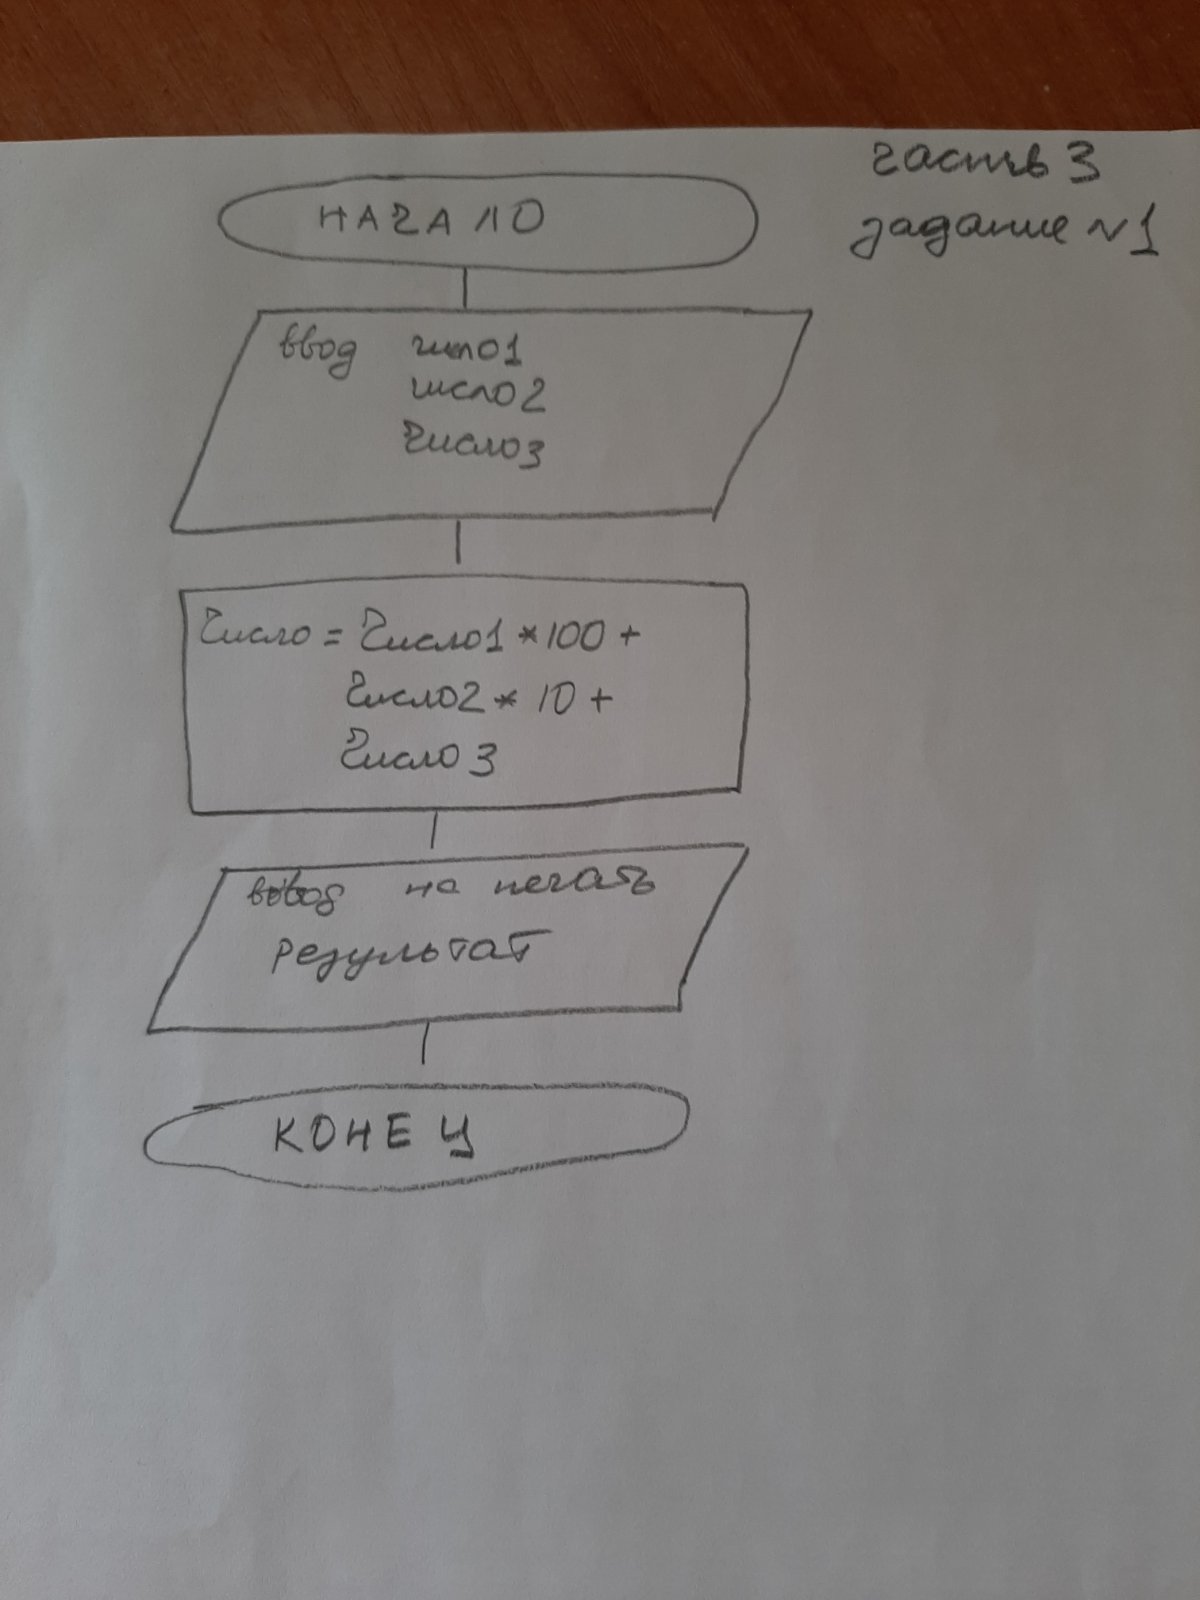 часть 3
задание №1
НАЧАЛО
ввод число1
число2
число3
Число = Число1 * 100 +
Число2 * 10 +
Число 3
вывод на печать
результат
КОНЕЦ